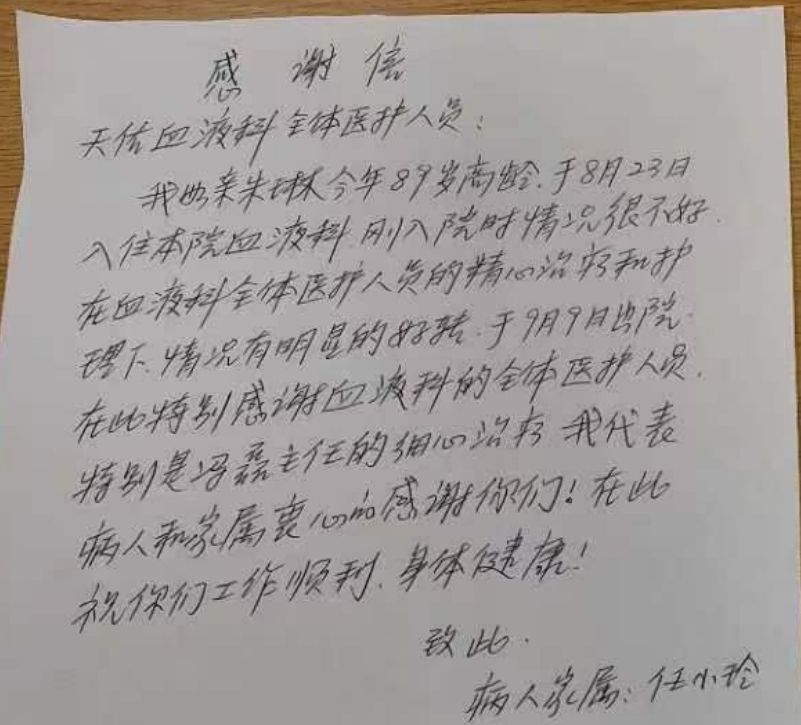 感谢信
天佑血液科全体医护人员:
我母亲朱琳今年89岁高龄.于8月23日
入住本院血液科.刚入院时情况很不好.
在血液科全体医护人员的精心治疗和护
理下.情况有明显的好转.于9月9日出院.
在此特别感谢血液科的全体医护人员.
特别是冯磊主任的细心治疗 我代表
病人和家属衷心的感谢你们!在此
祝你们工作顺利.身体健康!
致此.
病人家属:任小玲